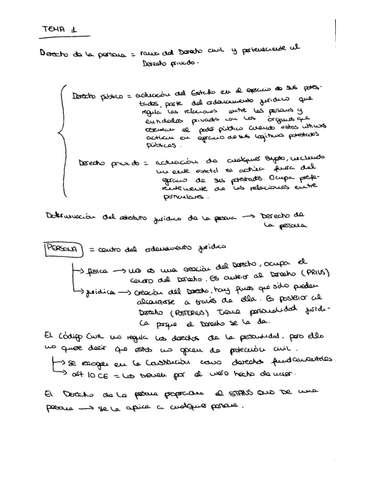 TEMA 1
Derecho de la persona = rama del Derecho civil y perteneciente al
Derecho privado.
Derecho público = actuación del Estado en el ejercicio de sus potes-
tades, parte del ordenamiento jurídico que
regula las relaciones entre las personas y
entidades privadas con los órganos que
ostentan el poder público cuando estos últimos
actúan en ejercicio de sus legítimas potestades
públicas.
Derecho privado = actuación de cualquier sujeto, incluyendo
un ente estatal si actúa fuera del
ejercicio de sus potestades. Ocupa prefe-
rentemente de las relaciones entre
particulares.
Determinación del estatuto jurídico de la persona → Derecho de
la persona
PERSONA = centro del ordenamiento jurídico
→ física → no es una creación del Derecho, ocupa el
centro del Derecho. Es anterior al Derecho (PRIUS)
→ jurídica → creación del Derecho, hay fines que sólo pueden
alcanzarse a través de ella. Es posterior al
Derecho (POSTERIUS) Tiene personalidad jurídi-
ca porque el Derecho se la da.
El Código Civil no regula los derechos de la personalidad, pero ello
no quiere decir que estos no gocen de protección civil.
→ se recogen en la Constitución como derechos fundamentales
→ art. 10 CE = los tienen por el mero hecho de nacer.
El Derecho de la persona proporciona el STATUS QUO DE una
persona → se le aplica a cualquier persona.